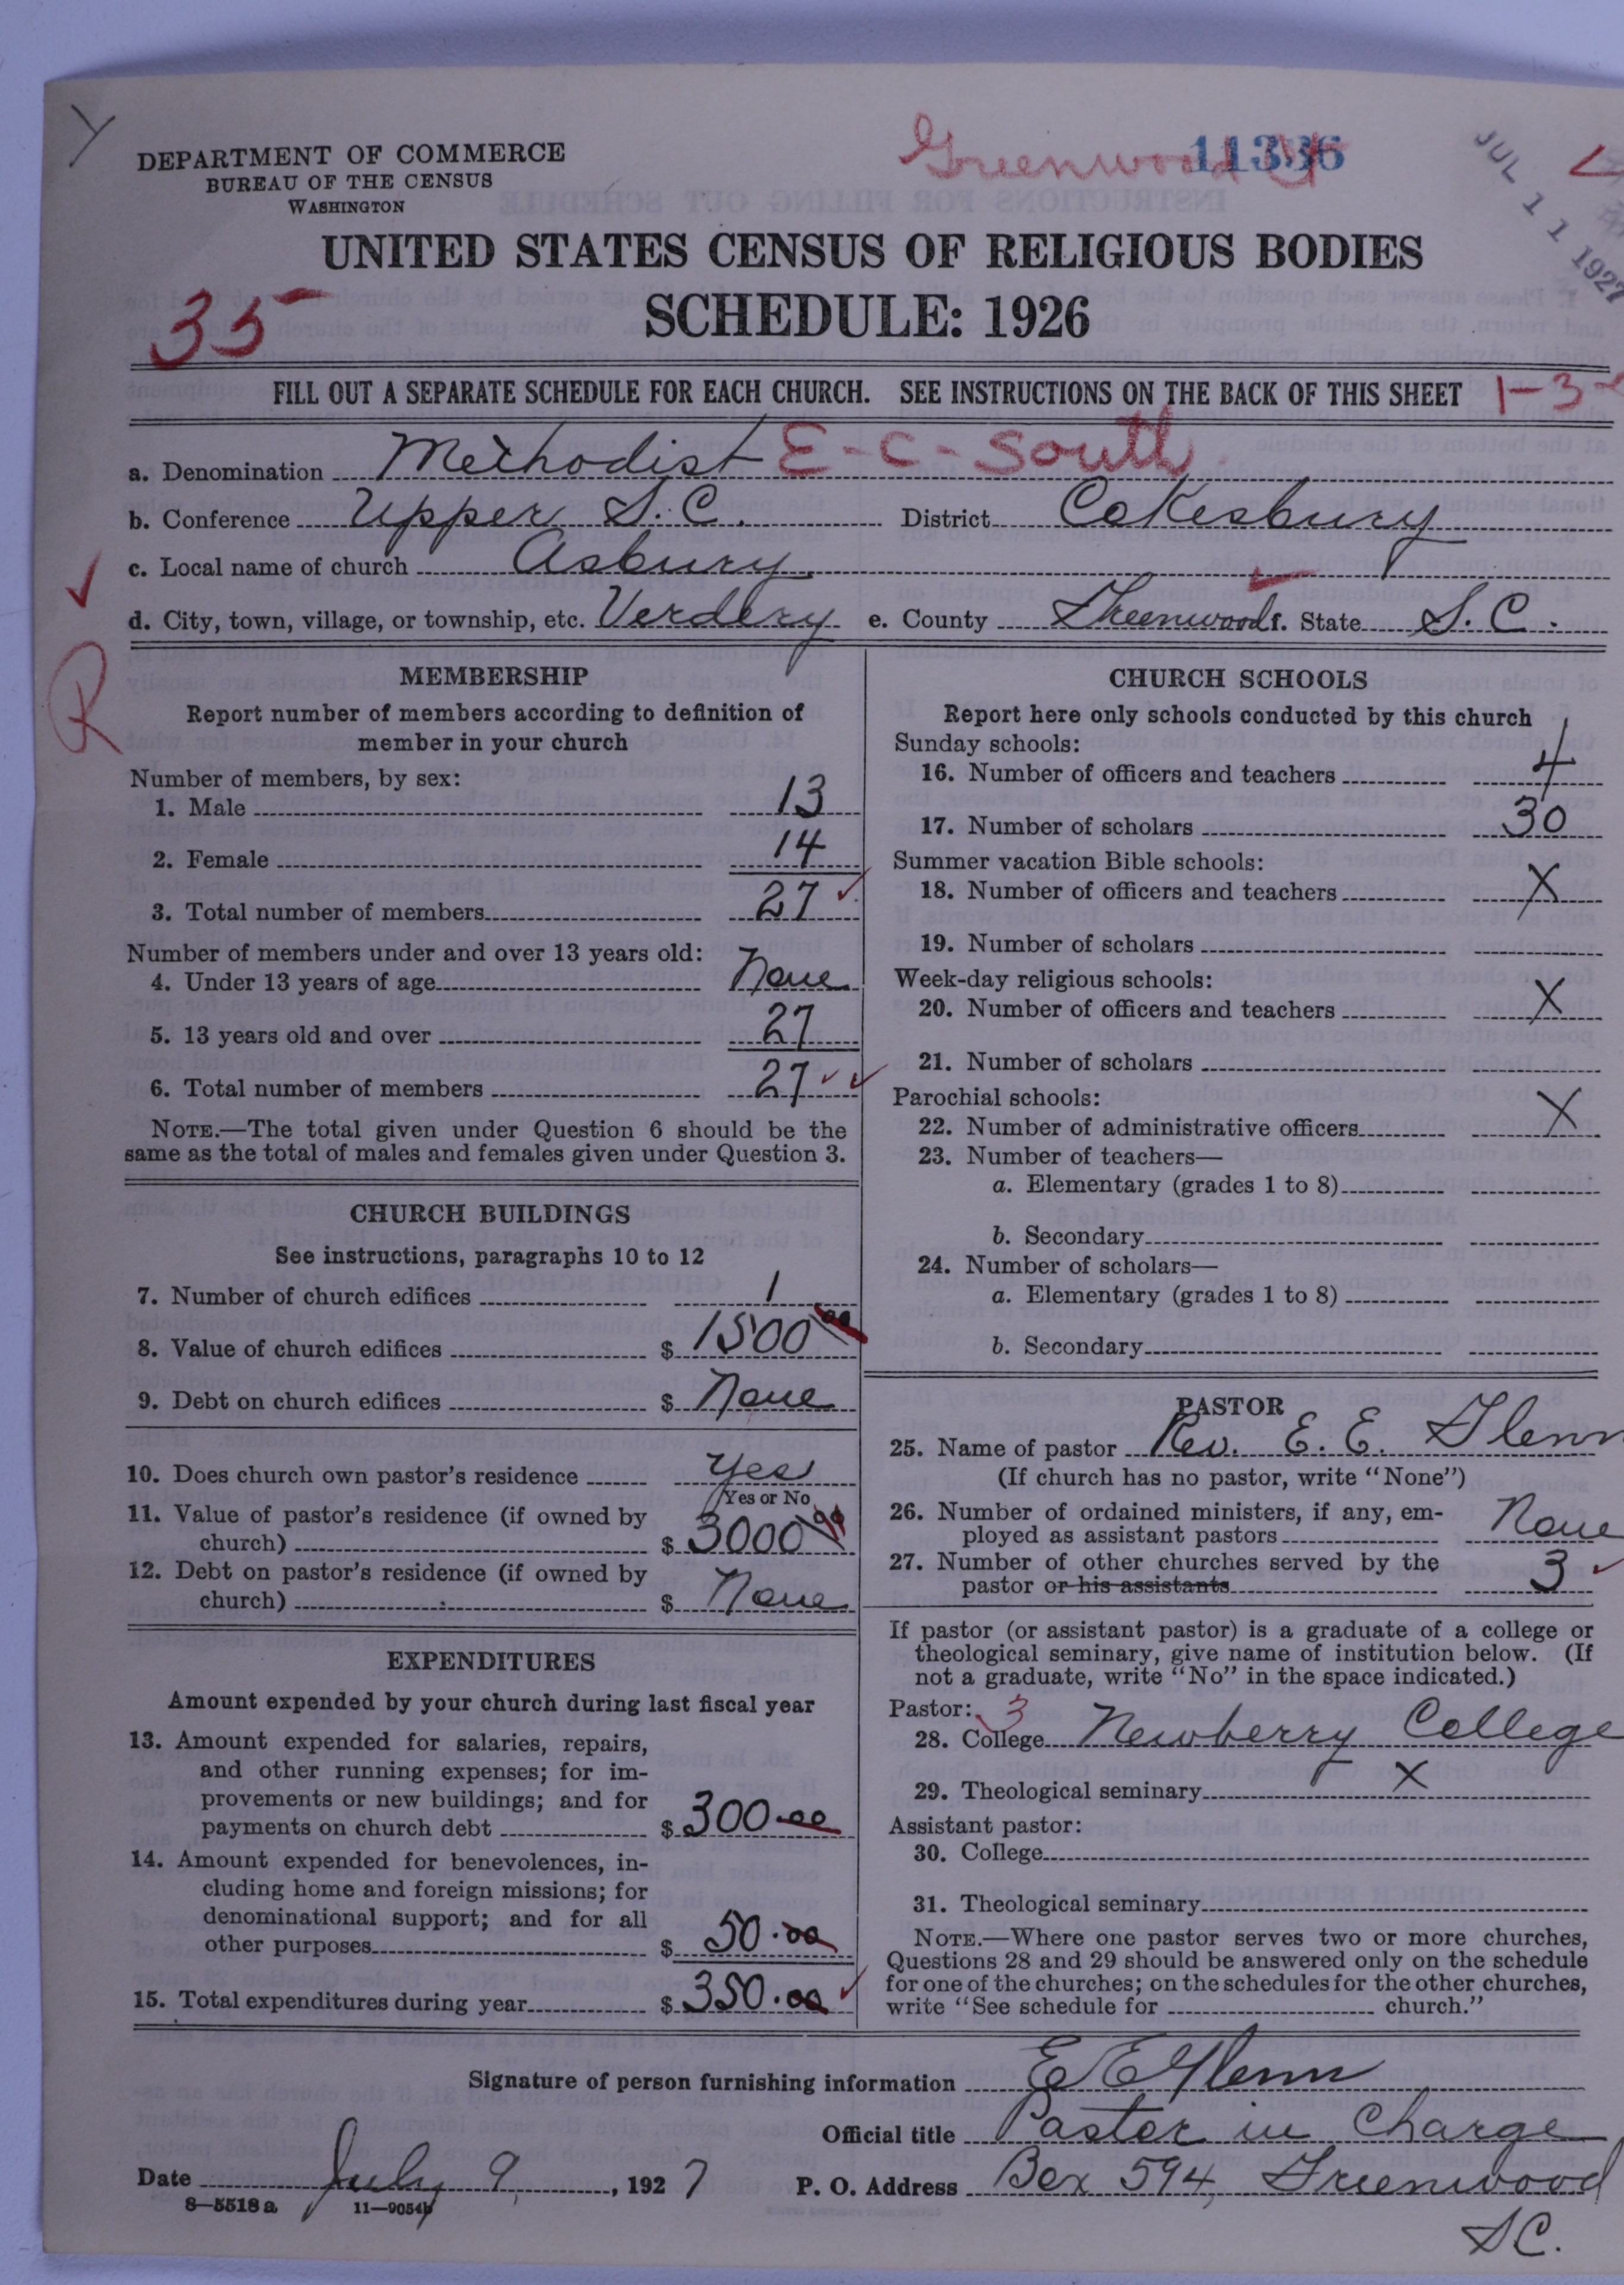 Y
DEPARTMENT OF COMMERCE
BUREAU OF THE CENSUS
WASHINGTON
Greenwood
JUL 11 1927
UNITED STATES CENSUS OF RELIGIOUS BODIES
SCHEDULE: 1926
35
FILL OUT A SEPARATE SCHEDULE FOR EACH CHURCH. SEE INSTRUCTIONS ON THE BACK OF THIS SHEET 1-3-
a. Denomination Methodist E-C-South
b. Conference Upper S.C. District Cokesbury
c. Local name of church Asbury
d. City, town, village, or township, etc. Verdery e. County Greenwood f. State S.C.
R
MEMBERSHIP
Report number of members according to definition of
member in your church
Number of members, by sex:
1. Male 13
2. Female 14
3. Total number of members 27
Number of members under and over 13 years old:
4. Under 13 years of age None
5. 13 years old and over 27
6. Total number of members 27
NOTE.—The total given under Question 6 should be the
same as the total of males and females given under Question 3.
CHURCH BUILDINGS
See instructions, paragraphs 10 to 12
7. Number of church edifices 1
8. Value of church edifices $ 1500 00
9. Debt on church edifices $ None
10. Does church own pastor's residence Yes
Yes or No
11. Value of pastor's residence (if owned by
church) $ 3000 00
12. Debt on pastor's residence (if owned by
church) $ None
EXPENDITURES
Amount expended by your church during last fiscal year
13. Amount expended for salaries, repairs,
and other running expenses; for im-
provements or new buildings; and for
payments on church debt $ 300.00
14. Amount expended for benevolences, in-
cluding home and foreign missions; for
denominational support; and for all
other purposes $ 50.00
15. Total expenditures during year $ 350.00
CHURCH SCHOOLS
Report here only schools conducted by this church
Sunday schools:
16. Number of officers and teachers 4
17. Number of scholars 30
Summer vacation Bible schools:
18. Number of officers and teachers X
19. Number of scholars
Week-day religious schools:
20. Number of officers and teachers X
21. Number of scholars
Parochial schools:
22. Number of administrative officers X
23. Number of teachers—
a. Elementary (grades 1 to 8)
b. Secondary
24. Number of scholars—
a. Elementary (grades 1 to 8)
b. Secondary
PASTOR
25. Name of pastor Rev. E. E. Glenn
(If church has no pastor, write "None")
26. Number of ordained ministers, if any, em-
ployed as assistant pastors None
27. Number of other churches served by the
pastor or his assistants 3
If pastor (or assistant pastor) is a graduate of a college or
theological seminary, give name of institution below. (If
not a graduate, write "No" in the space indicated.)
Pastor: 3
28. College Newberry College
29. Theological seminary X
Assistant pastor:
30. College
31. Theological seminary
NOTE.—Where one pastor serves two or more churches,
Questions 28 and 29 should be answered only on the schedule
for one of the churches; on the schedules for the other churches,
write "See schedule for church."
Signature of person furnishing information E E Glenn
Official title Pastor in Charge
Date July 9, 1927 P. O. Address Box 594, Greenwood
8—5518 a 11—9054b
S.C.